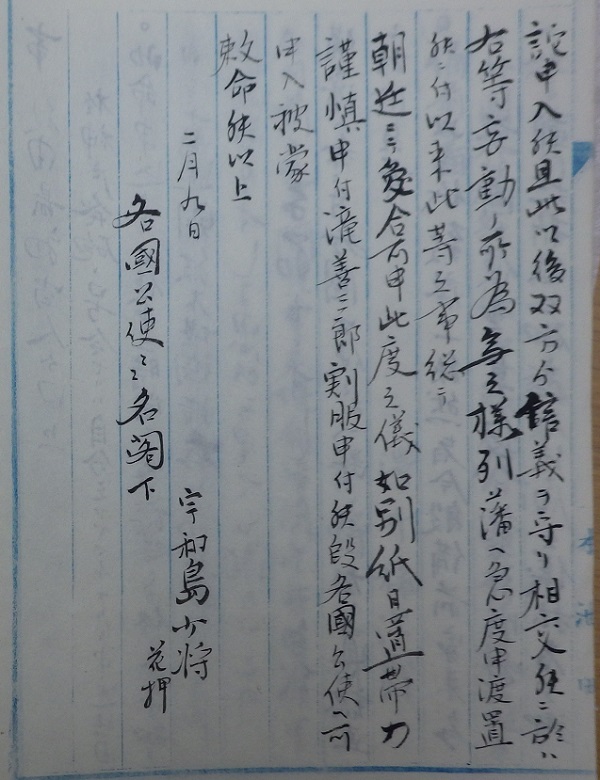 詫申入候且此以後双方ゟ信義ヲ守リ相交候ニ於ハ
右等妄動ノ所為無之様列藩ヘ急度申渡置
候ニ付以来此等之事総テ
朝廷ニテ受合可申此度之儀如別紙日置帯刀
謹慎申付滝善三郎割服申付候段各國公使ヘ可
申入被蒙
敕命候以上
二月九日
宇和島少将
花押
各國公使ニ名閣下